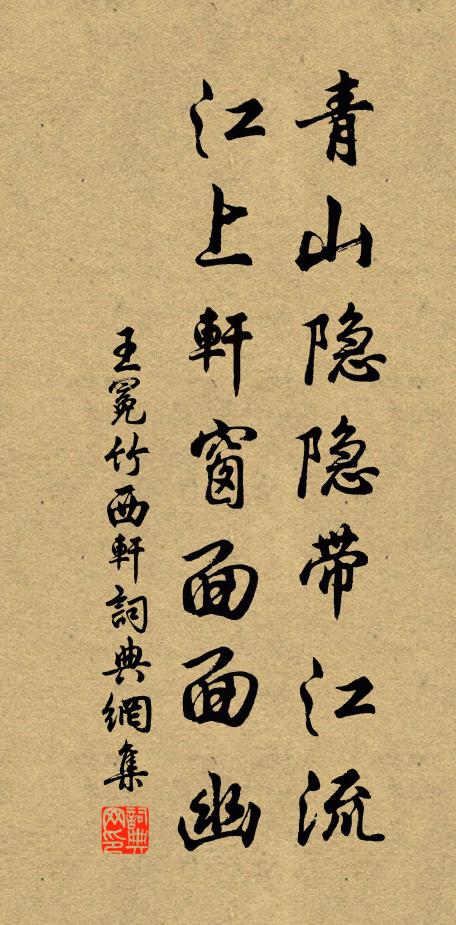 青山隐隐带江流
江上軒窗面面幽
王冕竹西軒詞典網集
詞典网印